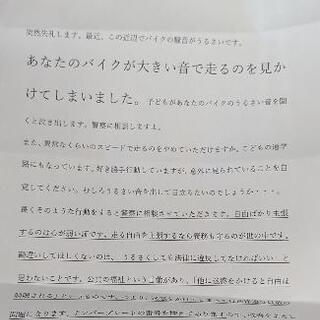 突然失礼します。最近、この近辺でバイクの騒音がうるさいです。
あなたのバイクが大きい音で走るのを見か
けてしまいました。子どもがあなたのバイクのうるさい音を聞
くと泣き出します。警察に相談しますよ。
また、異常なくらいのスピードで走るのをやめていただけますか。こどもの通学
路にもなっています。好き勝手行動していますが、意外に見られていることを自
覚してください。むしろうるさい音を出して目立ちたいのでしょうか・・・。
そのような行動をすると警察に相談させていただきます。自由ばかり主張
するのは心が弱い証です。走る自由を主張するなら義務も守るのが世の中です。
勘違いしてほしくないのは、うるさくしても法律に違反してなければいい と
思わないことです。公共の福祉という言葉があり、「他に迷惑をかけると自由は